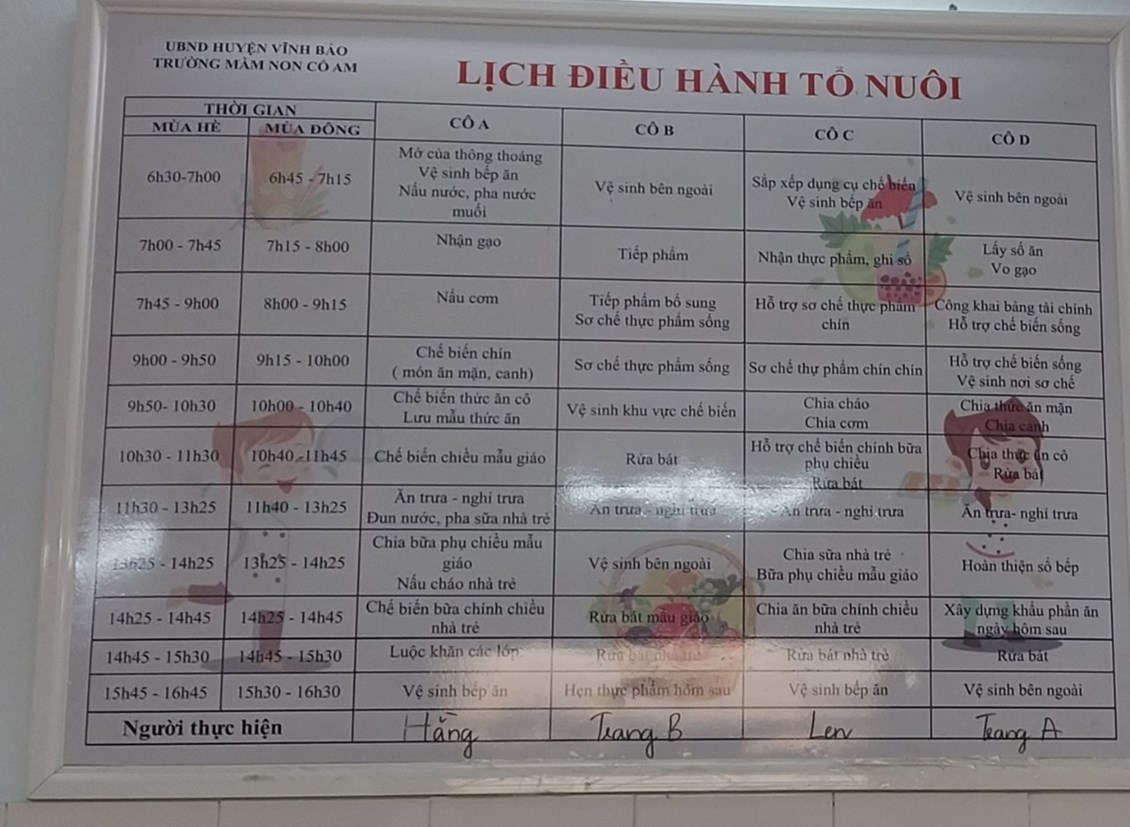 UBND HUYỆN VĨNH BẢO
TRƯỜNG MẦM NON CỔ AM
LỊCH ĐIỀU HÀNH TỔ NUÔI
THỜI GIAN
MÙA HÈ
MÙA ĐÔNG
CÔ A
CÔ B
CÔ C
CÔ D
6h30-7h00
6h45 - 7h15
Mở cửa thông thoáng
Vệ sinh bếp ăn
Nấu nước, pha nước
muối
Vệ sinh bên ngoài
Sắp xếp dụng cụ chế biến
Vệ sinh bếp ăn
Vệ sinh bên ngoài
7h00 - 7h45
7h15 - 8h00
Nhận gạo
Tiếp phẩm
Nhận thực phẩm, ghi sổ
Lấy số ăn
Vo gạo
7h45 - 9h00
8h00 - 9h15
Nấu cơm
Tiếp phẩm bổ sung
Sơ chế thực phẩm sống
Hỗ trợ sơ chế thực phẩm
chín
Công khai bảng tài chính
Hỗ trợ chế biến sống
9h00 - 9h50
9h15 - 10h00
Chế biến chín
( món ăn mặn, canh)
Sơ chế thực phẩm sống
Sơ chế thự phẩm chín chín
Hỗ trợ chế biến sống
Vệ sinh nơi sơ chế
9h50- 10h30
10h00 - 10h40
Chế biến thức ăn cô
Lưu mẫu thức ăn
Vệ sinh khu vực chế biến
Chia cháo
Chia cơm
Chia thức ăn mặn
Chia canh
10h30 - 11h30
10h40 -11h45
Chế biến chiều mẫu giáo
Rửa bát
Hỗ trợ chế biến chính bữa
phụ chiều
Rửa bát
Chia thức ăn cô
Rửa bát
11h30 - 13h25
11h40 - 13h25
Ăn trưa - nghỉ trưa
Đun nước, pha sữa nhà trẻ
Ăn trưa - nghỉ trưa
Ăn trưa - nghỉ trưa
Ăn trưa- nghỉ trưa
13h25 - 14h25
13h25 - 14h25
Chia bữa phụ chiều mẫu
giáo
Nấu cháo nhà trẻ
Vệ sinh bên ngoài
Chia sữa nhà trẻ
Bữa phụ chiều mẫu giáo
Hoàn thiện sổ bếp
14h25 - 14h45
14h25 - 14h45
Chế biến bữa chính chiều
nhà trẻ
Rửa bát mẫu giáo
Chia ăn bữa chính chiều
nhà trẻ
Xây dựng khẩu phần ăn
ngày hôm sau
14h45 - 15h30
14h45 - 15h30
Luộc khăn các lớp
Rửa bát nhà trẻ
Rửa bát nhà trẻ
Rửa bát
15h45 - 16h45
15h30 - 16h30
Vệ sinh bếp ăn
Hẹn thực phẩm hôm sau
Vệ sinh bếp ăn
Vệ sinh bên ngoài
Người thực hiện
Hằng
Trang B
Len
Trang A